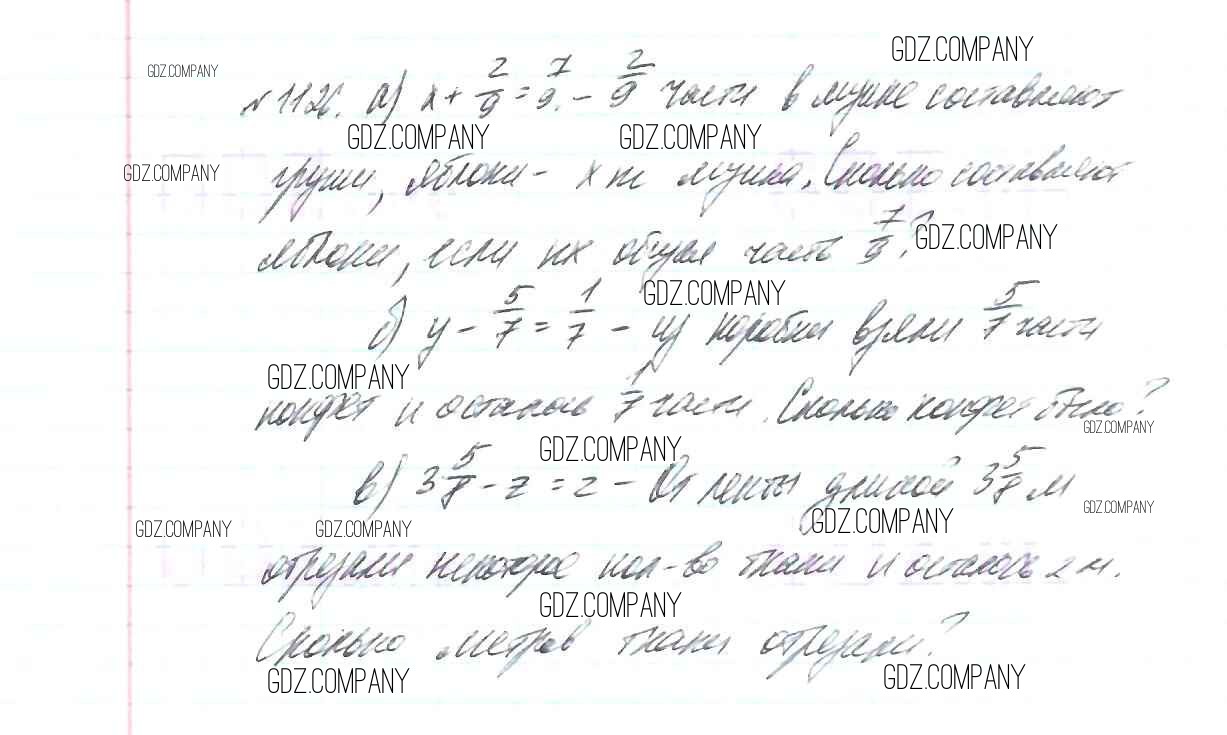 GDZ.COMPANY
GDZ.COMPANY
№1126. а) x + 2/9 = 7/9. - 2/9 части в мушке составляют
GDZ.COMPANY GDZ.COMPANY
GDZ.COMPANY
груши, яблоки - x т Сколько составляют
яблоки, если их общая часть 7/9?
GDZ.COMPANY
GDZ.COMPANY
б) y - 5/7 = 1/7 - из коробки взяли 5/7 части
GDZ.COMPANY
конфет и осталось 1/7 части. Сколько конфет было?
GDZ.COMPANY
GDZ.COMPANY
в) 3 5/8 - z = 2 - От ленты длиной 3 5/8 м
GDZ.COMPANY
GDZ.COMPANY GDZ.COMPANY GDZ.COMPANY
отрезали некоторое кол-во ткани и осталось 2 м.
GDZ.COMPANY
Сколько метров ткани отрезали?
GDZ.COMPANY GDZ.COMPANY